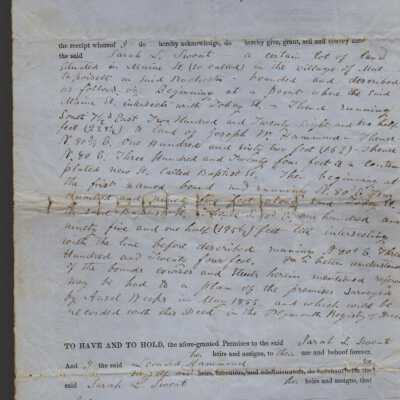 the receipt whereof I do hereby acknowledge, do hereby give, grant, sell and convey unto
the said Sarah L. Swont a certain lot of land
situated in Maine St. (so called) in the village of Mat-
tapoisett in said Rochester - bounded and described
as follows, viz. Beginning at a point where the said
Maine St. intersects with Tobey St. - Thence running
South 7 1/2° East Two Hundred and Twenty Eight and two thirds
feet (228 2/3) to land of Joseph W. Hammond - Thence
N. 80 3/4 E. One Hundred and sixty two feet (162) - Thence
N. 80 E. Three Hundred and Twenty four feet to a contem-
plated new St. called Baptist St. Then beginning at
the first named bound and running N. 80° E.
Hundred and
ninety five and one half feet till intersecting
with the line before described running N. 80° E. Three
Hundred and Twenty four feet. For a better understanding
of the bounds courses and Streets herein mentioned reference
may be had to a plan of the premises surveyed
by Ansel Weeks in May 1855 and which will be
recorded with this Deed in the Plymouth Registry of Deeds
TO HAVE AND TO HOLD, the afore-granted Premises to the said Sarah L. Swont
her heirs and assigns, to their use and behoof forever.
And I the said Leonard Hammond for
myself and heirs, executors, and administrators, do covenant with the
said Sarah L. Swont her heirs and assigns, that